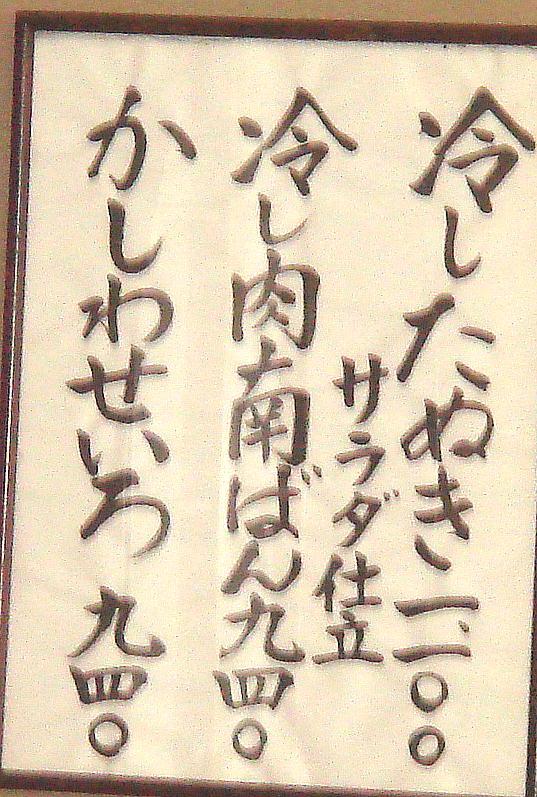 冷したぬき 一二〇〇
サラダ仕立
冷し肉南ばん 九四〇
かしわせいろ 九四〇